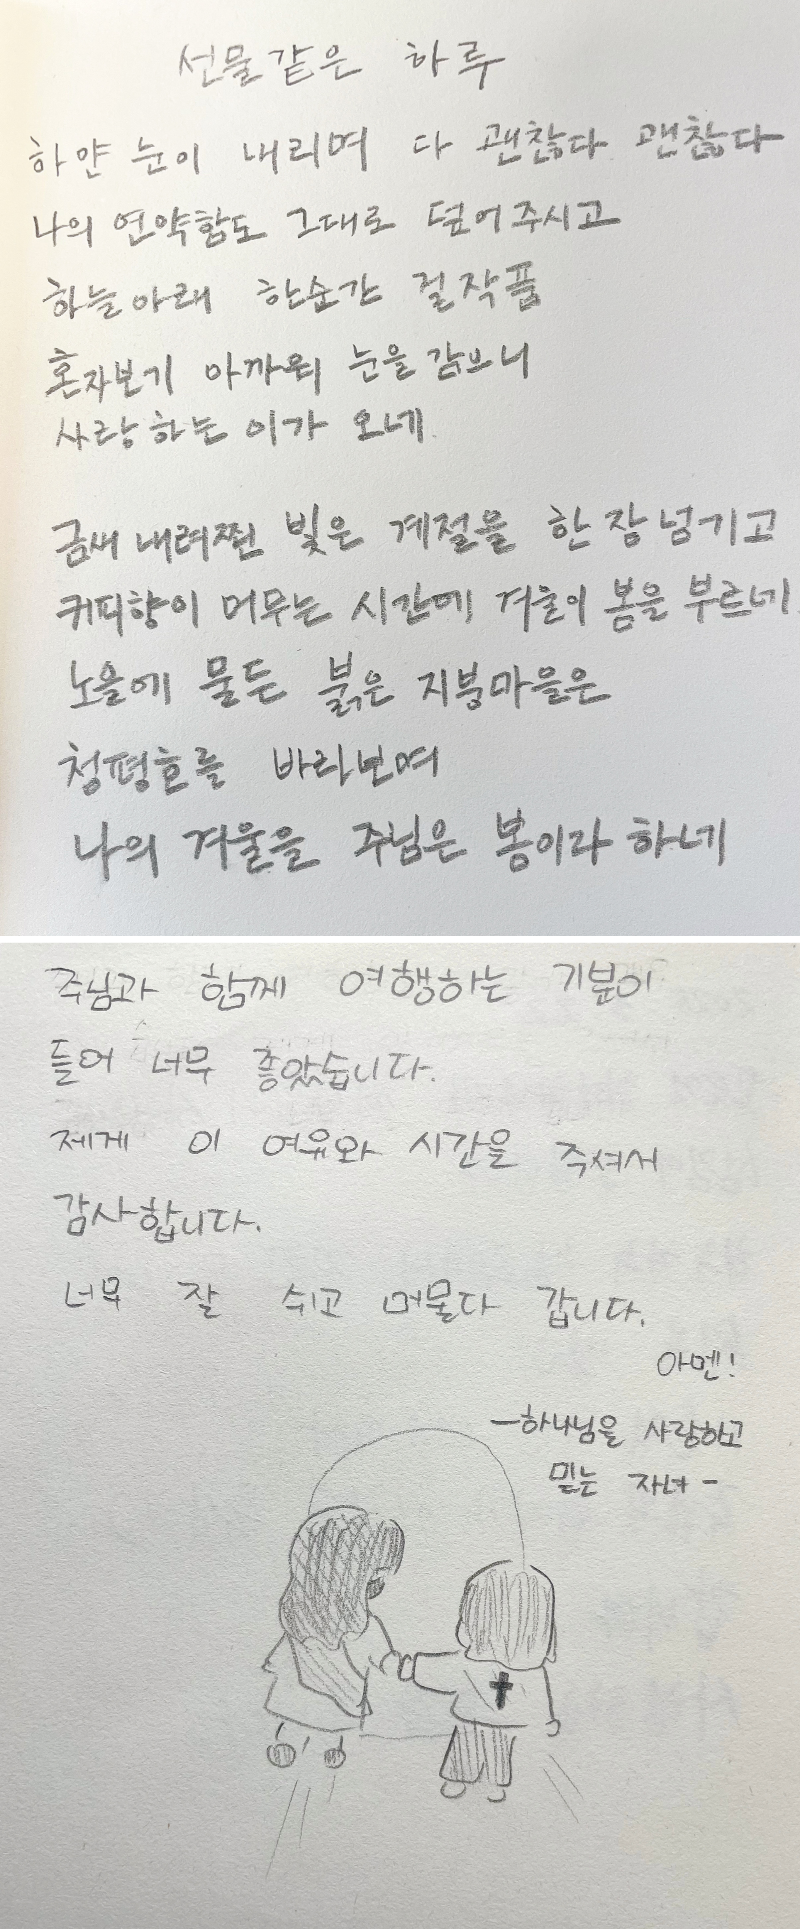 선물같은 하루
하얀 눈이 내리며 다 괜찮다 괜찮다
나의 연약함도 그대로 덮어주시고
하늘아래 한순간 걸작품
혼자보기 아까워 눈을 감으니
사랑하는 이가 오네.
금새 내려쬔 빛은 계절을 한 장 넘기고
커피향이 머무는 시간에 겨울이 봄을 부르네.
노을에 물든 붉은 지붕마을은
청평호를 바라보며
나의 겨울을 주님은 봄이라 하네
주님과 함께 여행하는 기분이
들어 너무 좋았습니다.
제게 이 여유와 시간을 주셔서
감사합니다.
너무 잘 쉬고 머물다 갑니다.
아멘!
-하나님을 사랑하고
믿는 자녀-